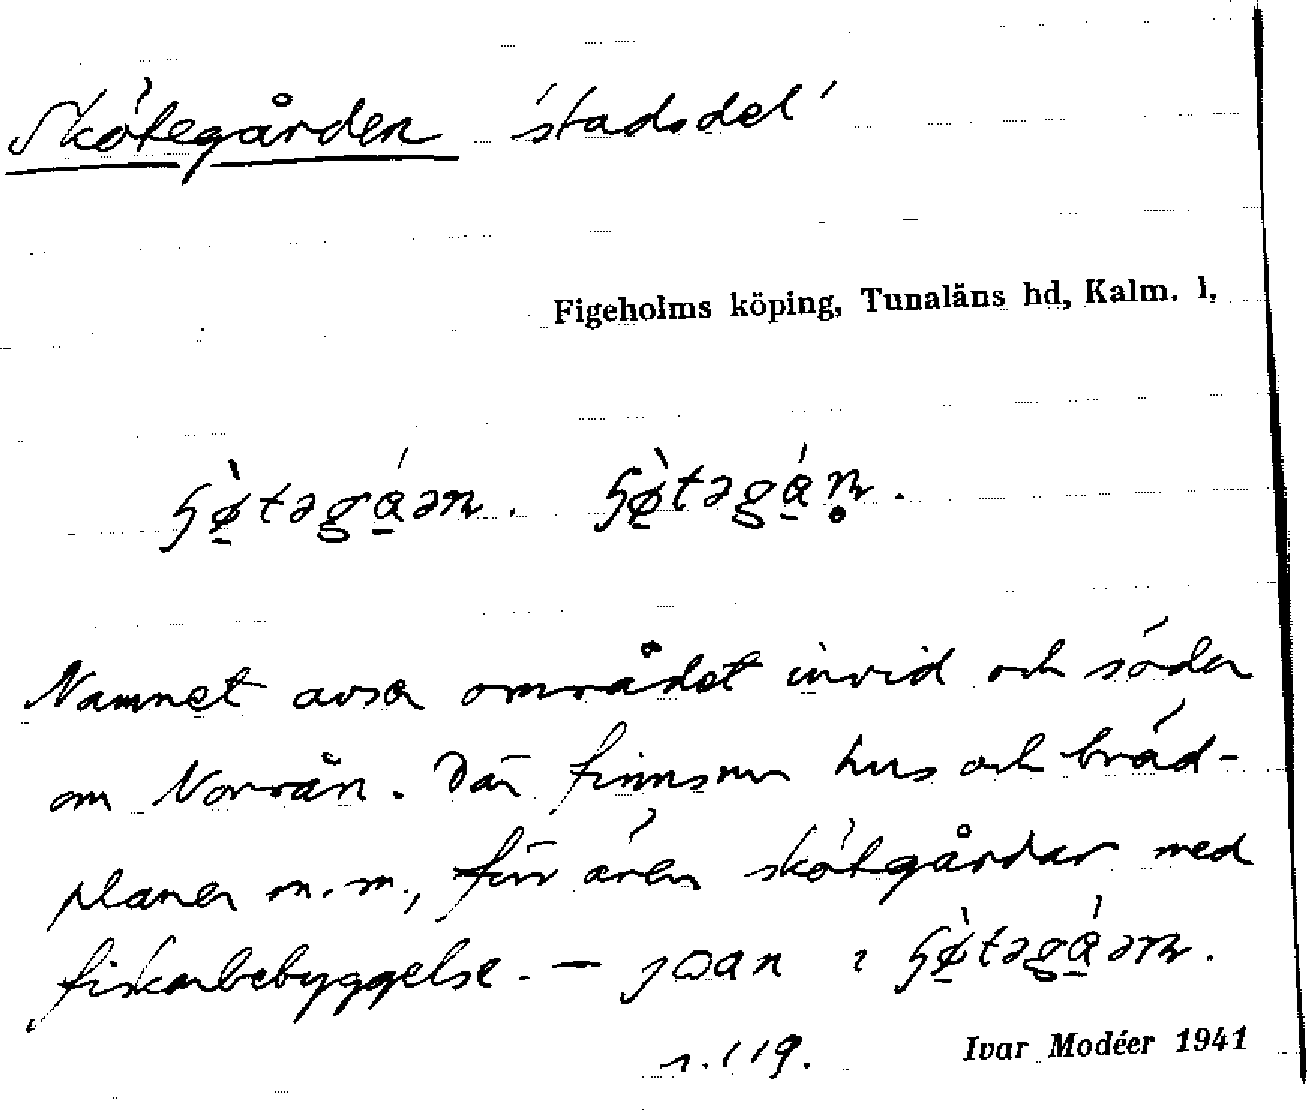 Skötegården 'stadsdel'
Figeholms köping, Tunaläns hd, Kalm. l.
ʂø̀təgɑ́ən. ʂø̀təgɑ́n̥.
Namnet avser området invid och söder
om Norrån. Där finns nu hus och bräd-
planer m.m., förr även skötgårdar med
fiskarbebyggelse. —
ʂø̀təgɑ́ən.
s. 119.
Ivar Modéer 1941